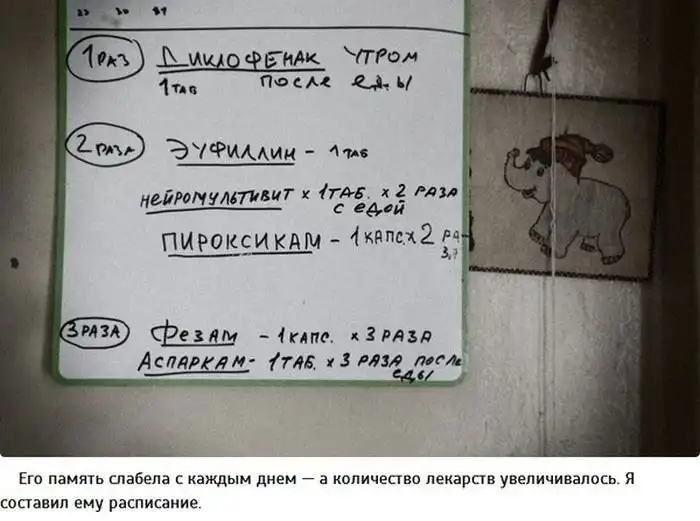 1 РАЗ ДИКЛОФЕНАК УТРОМ
1 ТАБ ПОСЛЕ ЕДЫ
2 РАЗА ЭУФИЛЛИН - 1 ТАБ
НЕЙРОМУЛЬТИВИТ × 1 ТАБ. × 2 РАЗА
С ЕДОЙ
ПИРОКСИКАМ - 1 КАПС. × 2 РА-
3 РАЗА ФЕЗАМ - 1 КАПС. × 3 РАЗА
АСПАРКАМ - 1 ТАБ. × 3 РАЗА ПОСЛЕ
ЕДЫ
Его память слабела с каждым днем — а количество лекарств увеличивалось. Я
составил ему расписание.